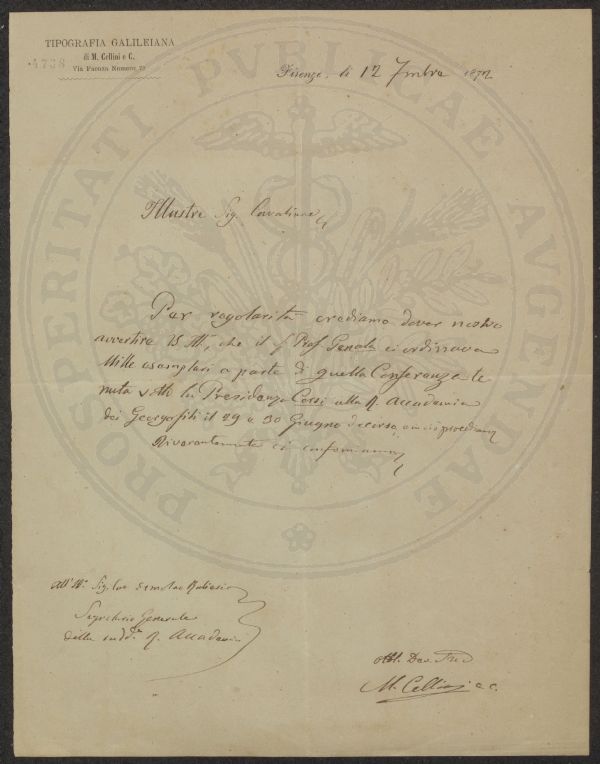 TIPOGRAFIA GALILEIANA
di M. Cellini e C.
4738
Via Faenza Numero 79
Firenze, li 12 7mbre 1872
Illustre Sig. Cavaliere
Per regolarità crediamo dover nostro
avvertire VS Ill., che il Prof. Genala ci ordinava
Mille esemplari a parte di quella Conferenza te
nuta sotto la Presidenza Corsi alla R. Accademia
dei Georgofili il 29 e 30 Giugno decorso,
Riverentemente ci confermiamo
all' Ill. Sig. Cav.
Segretario Generale
della sudd.a R. Accademia
Dev.
M. Cellini e C.
PROSPERITATI PVBLICAE AVGENDAE